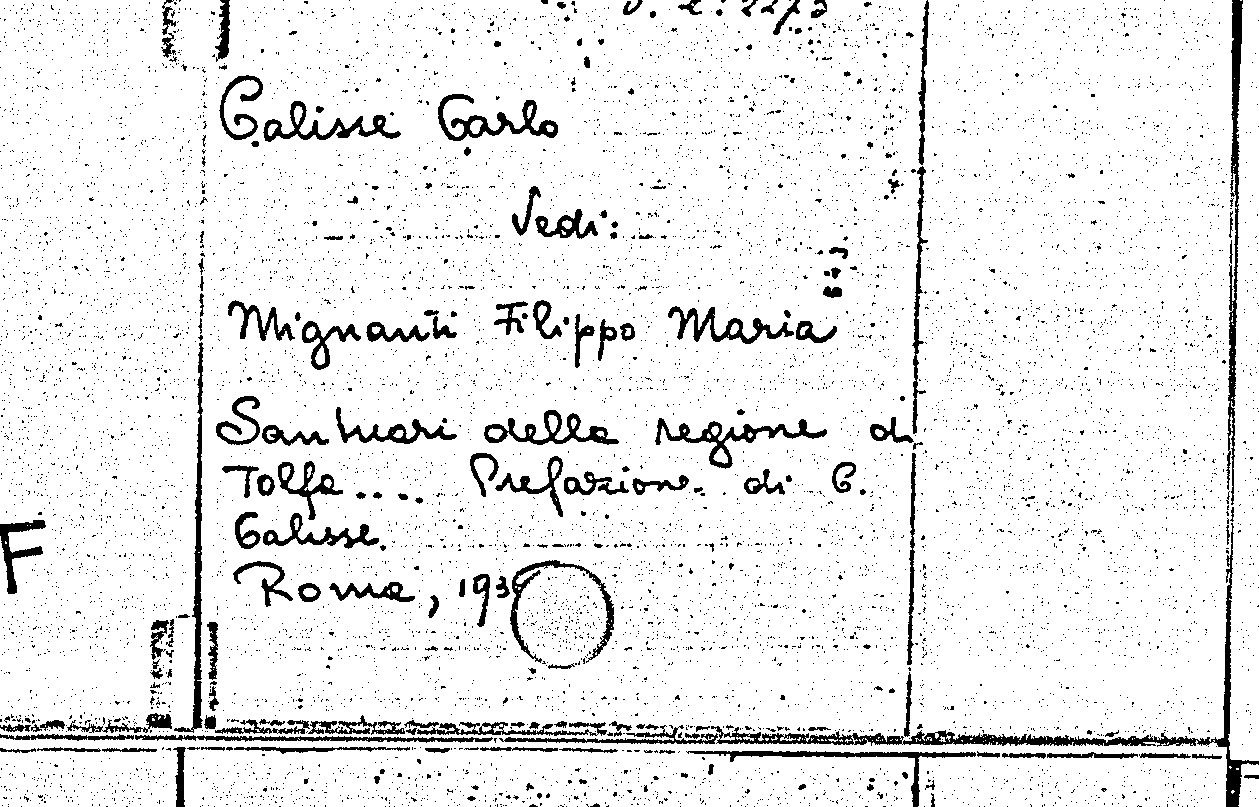 Calisse Carlo
Vedi:
Mignanti Filippo Maria
Santuari della regione di
Tolfa.... Prefazione di C.
Calisse.
Roma, 193
F